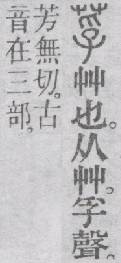 莩艸也。从艸。孚聲。
芳無切。古
音在三部。